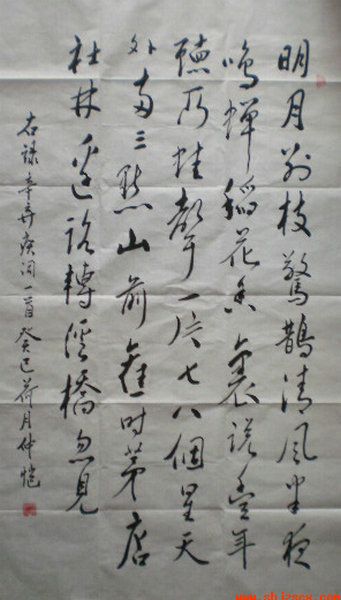 明月别枝驚鵲清風半夜
鳴蟬稻花香裏說豐年
聽取蛙聲一片七八個星天
外兩三點山前舊時茅店
社林邊路轉溪橋忽見
右録辛弃疾詞一首癸巳荷月仲愷